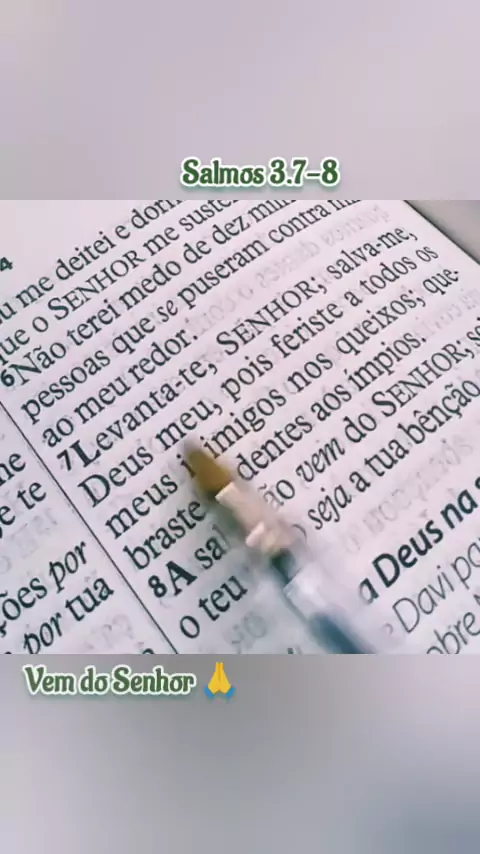 Salmos 3.7-8
4
me deitei e
ue o SENHOR me
6Não terei medo de dez
pessoas que se puseram contra
ao meu redor.
7Levanta-te, SENHOR; salva-me,
Deus meu, pois feriste a todos os
meus inimigos nos queixos; que-
braste dentes aos ímpios.
8A vem do SENHOR;
o teu seja a tua bênção
e te
ões por
por tua
a Deus na
Davi
Vem do Senhor 🙏